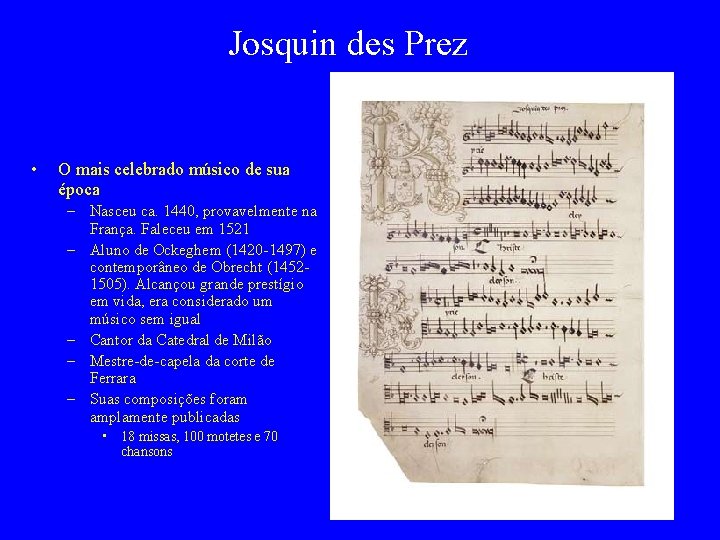 Josquin des Prez
• O mais celebrado músico de sua
época
– Nasceu ca. 1440, provavelmente na
França. Faleceu em 1521
– Aluno de Ockeghem (1420-1497) e
contemporâneo de Obrecht (1452-
1505). Alcançou grande prestígio
em vida, era considerado um
músico sem igual
– Cantor da Catedral de Milão
– Mestre-de-capela da corte de
Ferrara
– Suas composições foram
amplamente publicadas
• 18 missas, 100 motetes e 70
chansons
Josquin des prez.